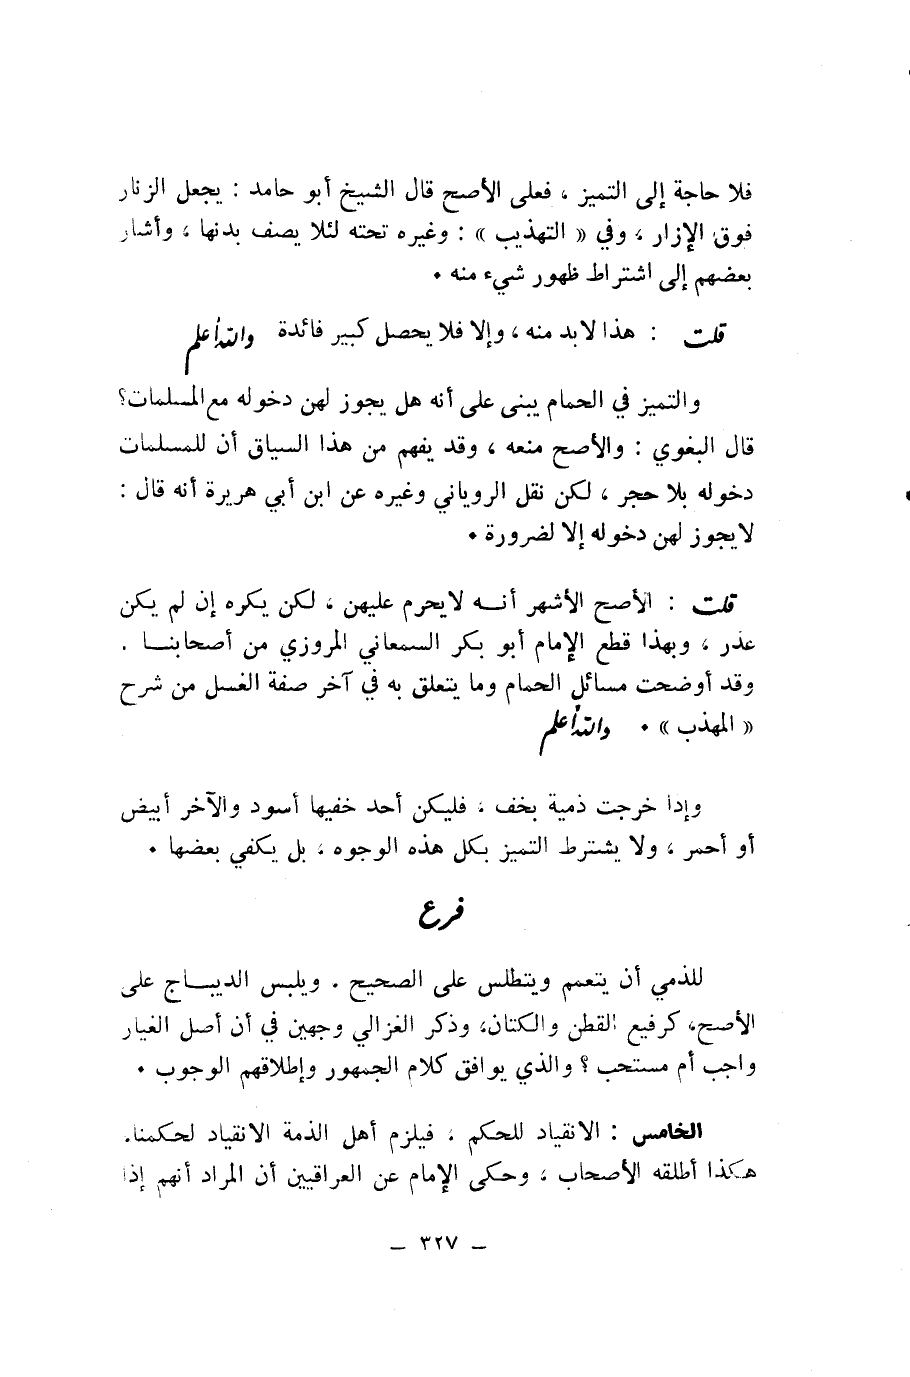 فلا حاجة إلى التميز ، فعلى الأصح قال الشيخ أبو حامد : يجعل الزنار
فوق الإزار ، وفي « التهذيب » : وغيره تحته لئلا يصف بدنها ، وأشار
بعضهم إلى اشتراط ظهور شيء منه •
قلت : هذا لابد منه ، وإلا فلا يحصل كبير فائدة والله أعلم
والتميز في الحمام يبنى على أنه هل يجوز لهن دخوله مع المسلمات؟
قال البغوي : والأصح منعه ، وقد يفهم من هذا السياق أن للمسلمات
دخوله بلا حجر ، لكن نقل الروياني وغيره عن ابن أبي هريرة أنه قال :
لايجوز لهن دخوله إلا لضرورة •
قلت : الأصح الأشهر أنــه لايحرم عليهن ، لكن يكره إن لم يكن
عذر ، وبهذا قطع الإمام أبو بكر السمعاني المروزي من أصحابنــا .
وقد أوضحت مسائل الحمام وما يتعلق به في آخر صفة الغسل من شرح
« المهذب » • والله أعلم
وإذا خرجت ذمية بخف ، فليكن أحد خفيها أسود والآخر أبيض
أو أحمر ، ولا يشترط التميز بكل هذه الوجوه ، بل يكفي بعضها •
فرع
للذمي أن يتعمم ويتطلس على الصحيح . ويلبس الديبــاج على
الأصح، كرفيع القطن والكتان، وذكر الغزالي وجهين في أن أصل الغيار
واجب أم مستحب ؟ والذي يوافق كلام الجمهور وإطلاقهم الوجوب •
الخامس : الانقياد للحكم ، فيلزم أهل الذمة الانقياد لحكمنا.
هكذا أطلقه الأصحاب ، وحكى الإمام عن العراقيين أن المراد أنهم إذا
– ٣٢٧ –